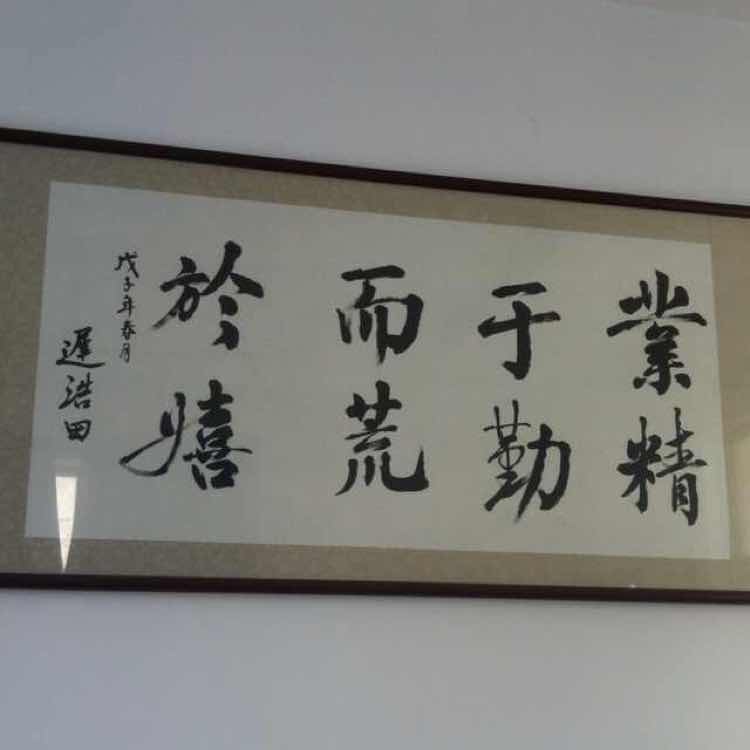 業精
于勤
而荒
於嬉
戊子年春月
遲浩田